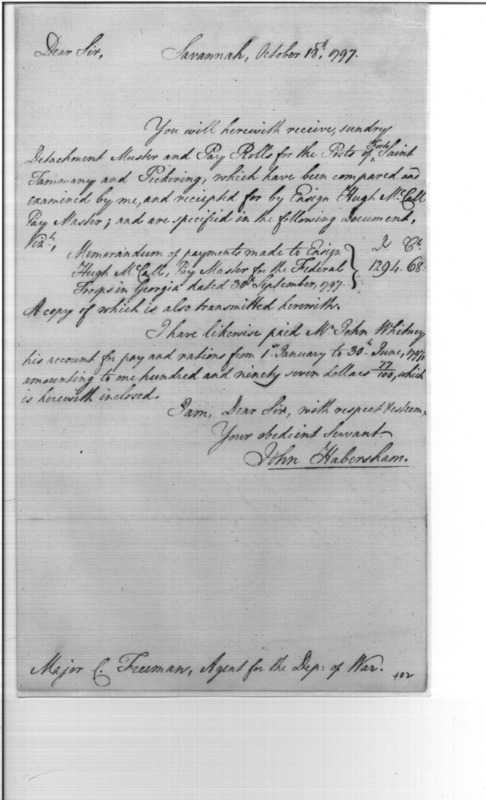 Dear Sir, Savannah, October 18th, 1797.
You will herewith receive, sundry
Detachment Muster and Pay Rolls for the Posts of Forts Saint
Tammany and Pickering, which have been compared and
examined by me, and receipted for by Ensign Hugh McCall
Pay Master; and are specified in the following Document,
Vizt.,
Memorandum of payments made to Ensign
Hugh McCall, Pay Master for the Federal
Troops in Georgia dated 30th September, 1797.
1294.68.
A copy of which is also transmitted herewith.
I have likewise paid Mr John Whitney
his account for pay and rations from 1st January to 30th June, 1797
amounting to one hundred and ninety seven dollars 77/100, which
is herewith inclosed.
I am, Dear Sir, with respect & esteem,
Your obedient Servant
John Habersham.
Major C. Freeman, Agent for the Dep: of War.
402